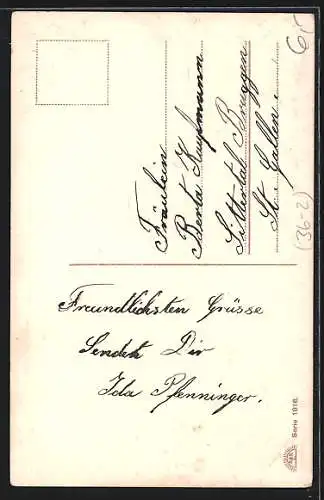 Fräulein
Berta Kaufmann
Sittertal Bruggen
St. Gallen.
Freundlichsten Grüsse
Sendet Dir
Ida Pfenninger.
Serie 1916.
(36-2)